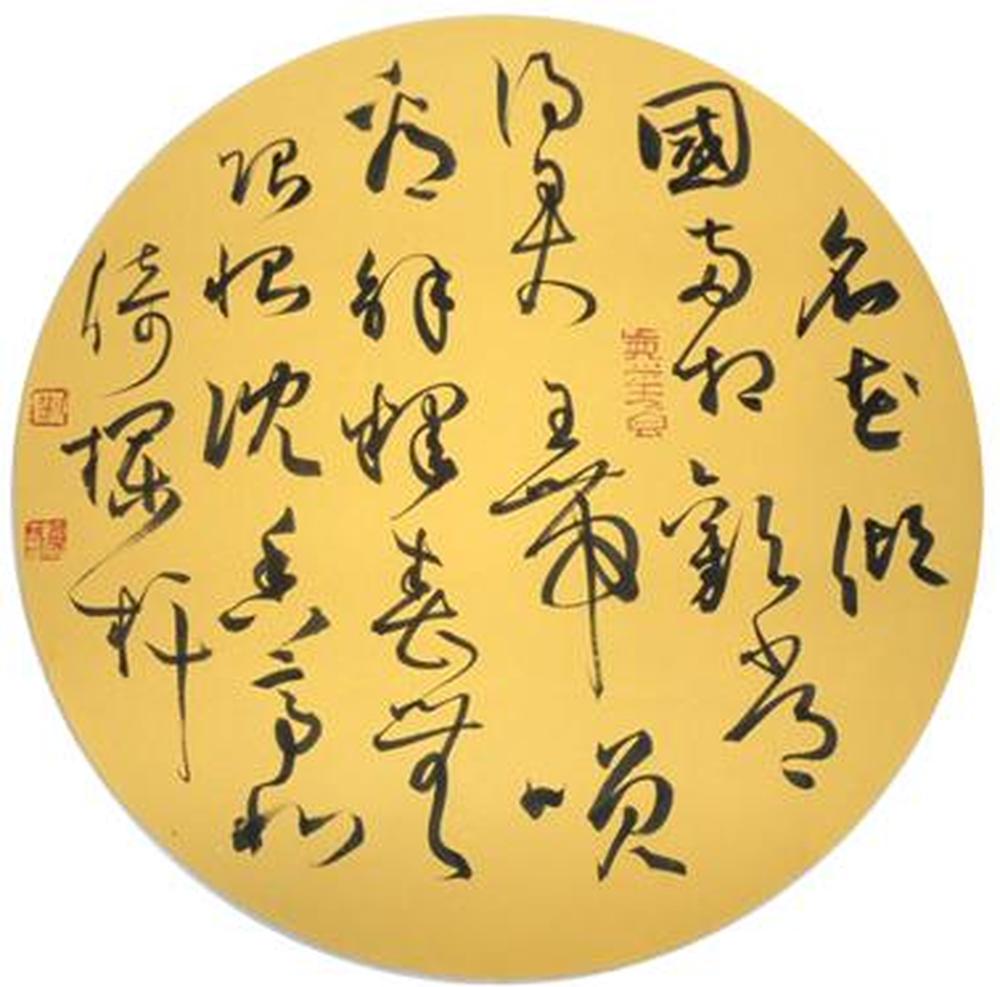 名花傾
國兩相歡常
得君王帶咲
看解釋春無
限恨沈香亭北
倚欄杆